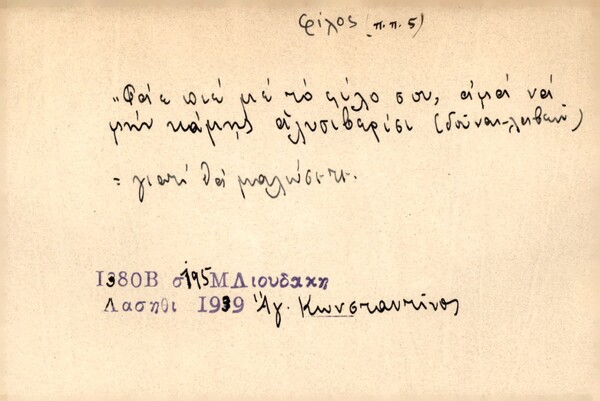 φίλος (π.π. 5)
„Φάε πιέ μέ τό φίλο σου, ἀμά νά
μήν κάμης ἀλισιβερίσι (δοῦναι-λαβεῖν)
= γιατί θά μαλώσετε.
1380Β σ 195 ΜΛιουδακη
Λασηθι 1939 Ἁγ. Κωνσταντίνος